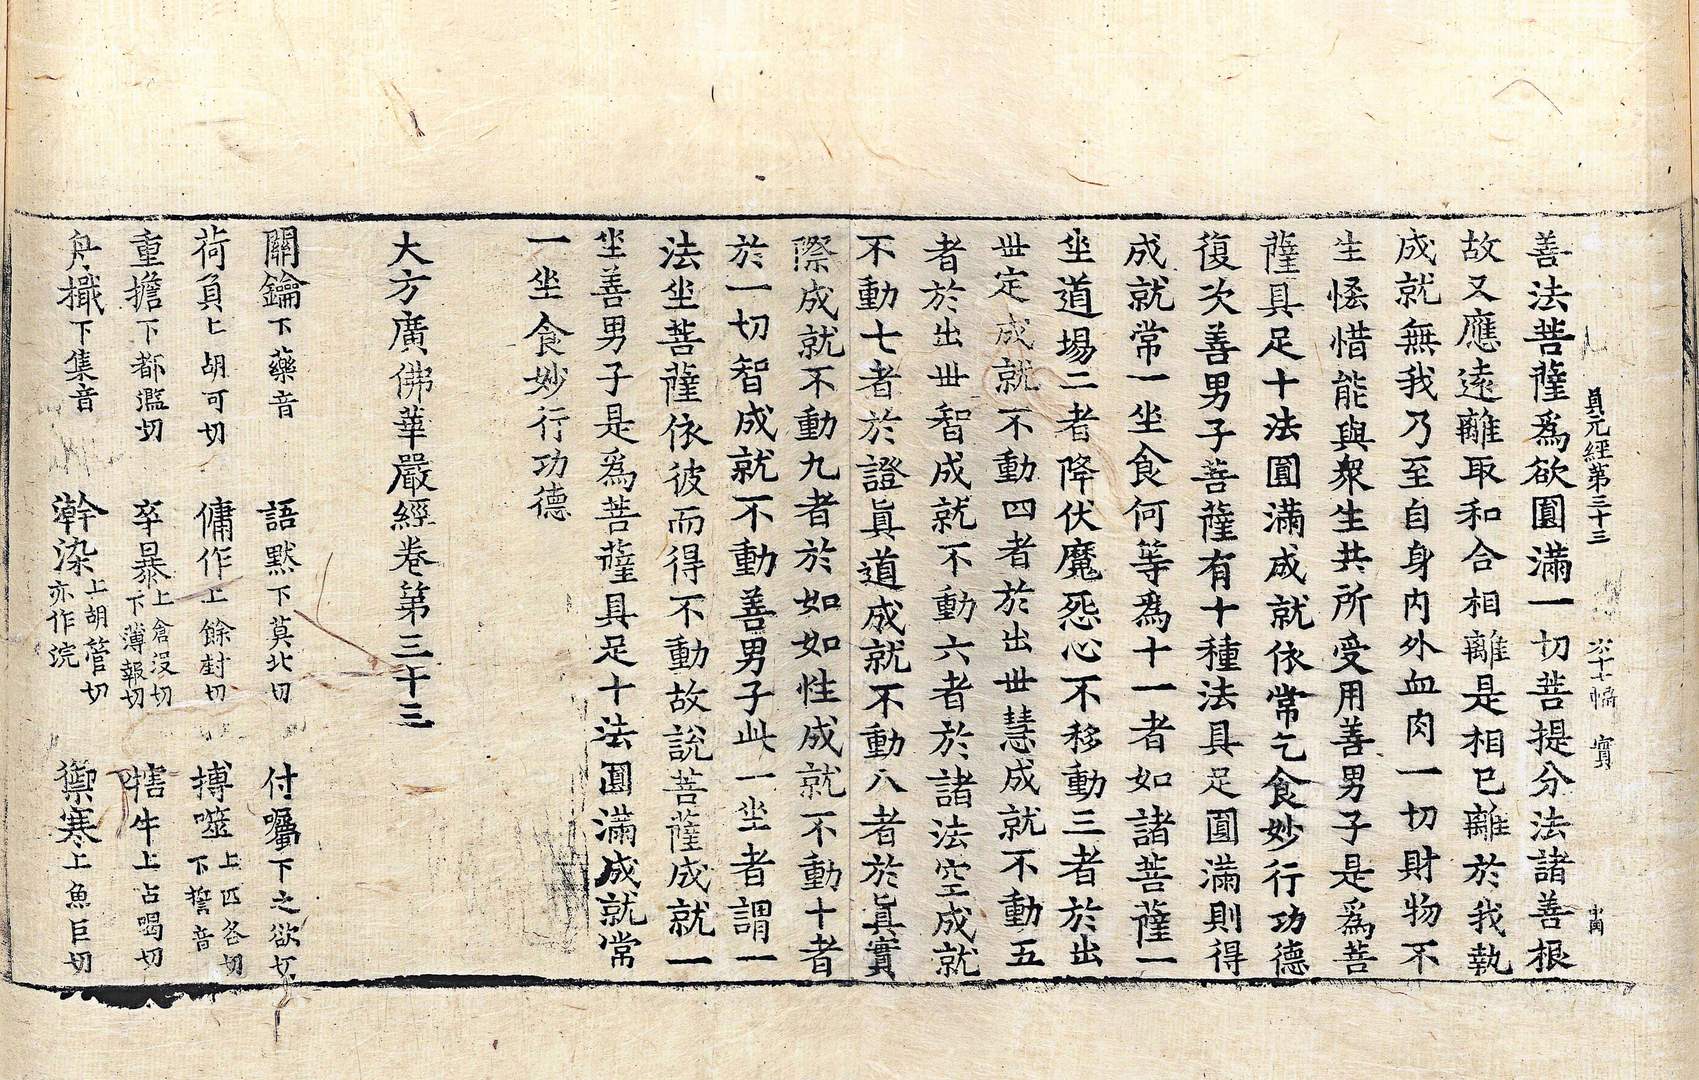 貞元經第三十三 六十七幅 實
善法菩薩爲欲圓滿一切菩提分法諸善根
故又應遠離取和合相離是相已離於我執
成就無我乃至自身內外血肉一切財物不
生悋惜能與衆生共所受用善男子是爲菩
薩具足十法圓滿成就依常乞食妙行功德
復次善男子菩薩有十種法具足圓滿則得
成就常一坐食何等爲十一者如諸菩薩一
坐道場二者降伏魔怨心不移動三者於出
世定成就不動四者於出世慧成就不動五
者於出世智成就不動六者於諸法空成就
不動七者於證眞道成就不動八者於眞實
際成就不動九者於如如性成就不動十者
於一切智成就不動善男子此一坐者謂一
法坐菩薩依彼而得不動故說菩薩成就一
坐善男子是爲菩薩具足十法圓滿成就常
一坐食妙行功德
大方廣佛華嚴經卷第三十三
關鑰下藥音 語默下莫北切 付囑下之欲切
荷負上胡可切 傭作上餘封切 搏噬上匹各切下誓音
重擔下都濫切 卒暴上倉沒切下薄報切 犗牛上占喝切
舟檝下集音 澣染上胡管切亦作浣 禦寒上魚巨切